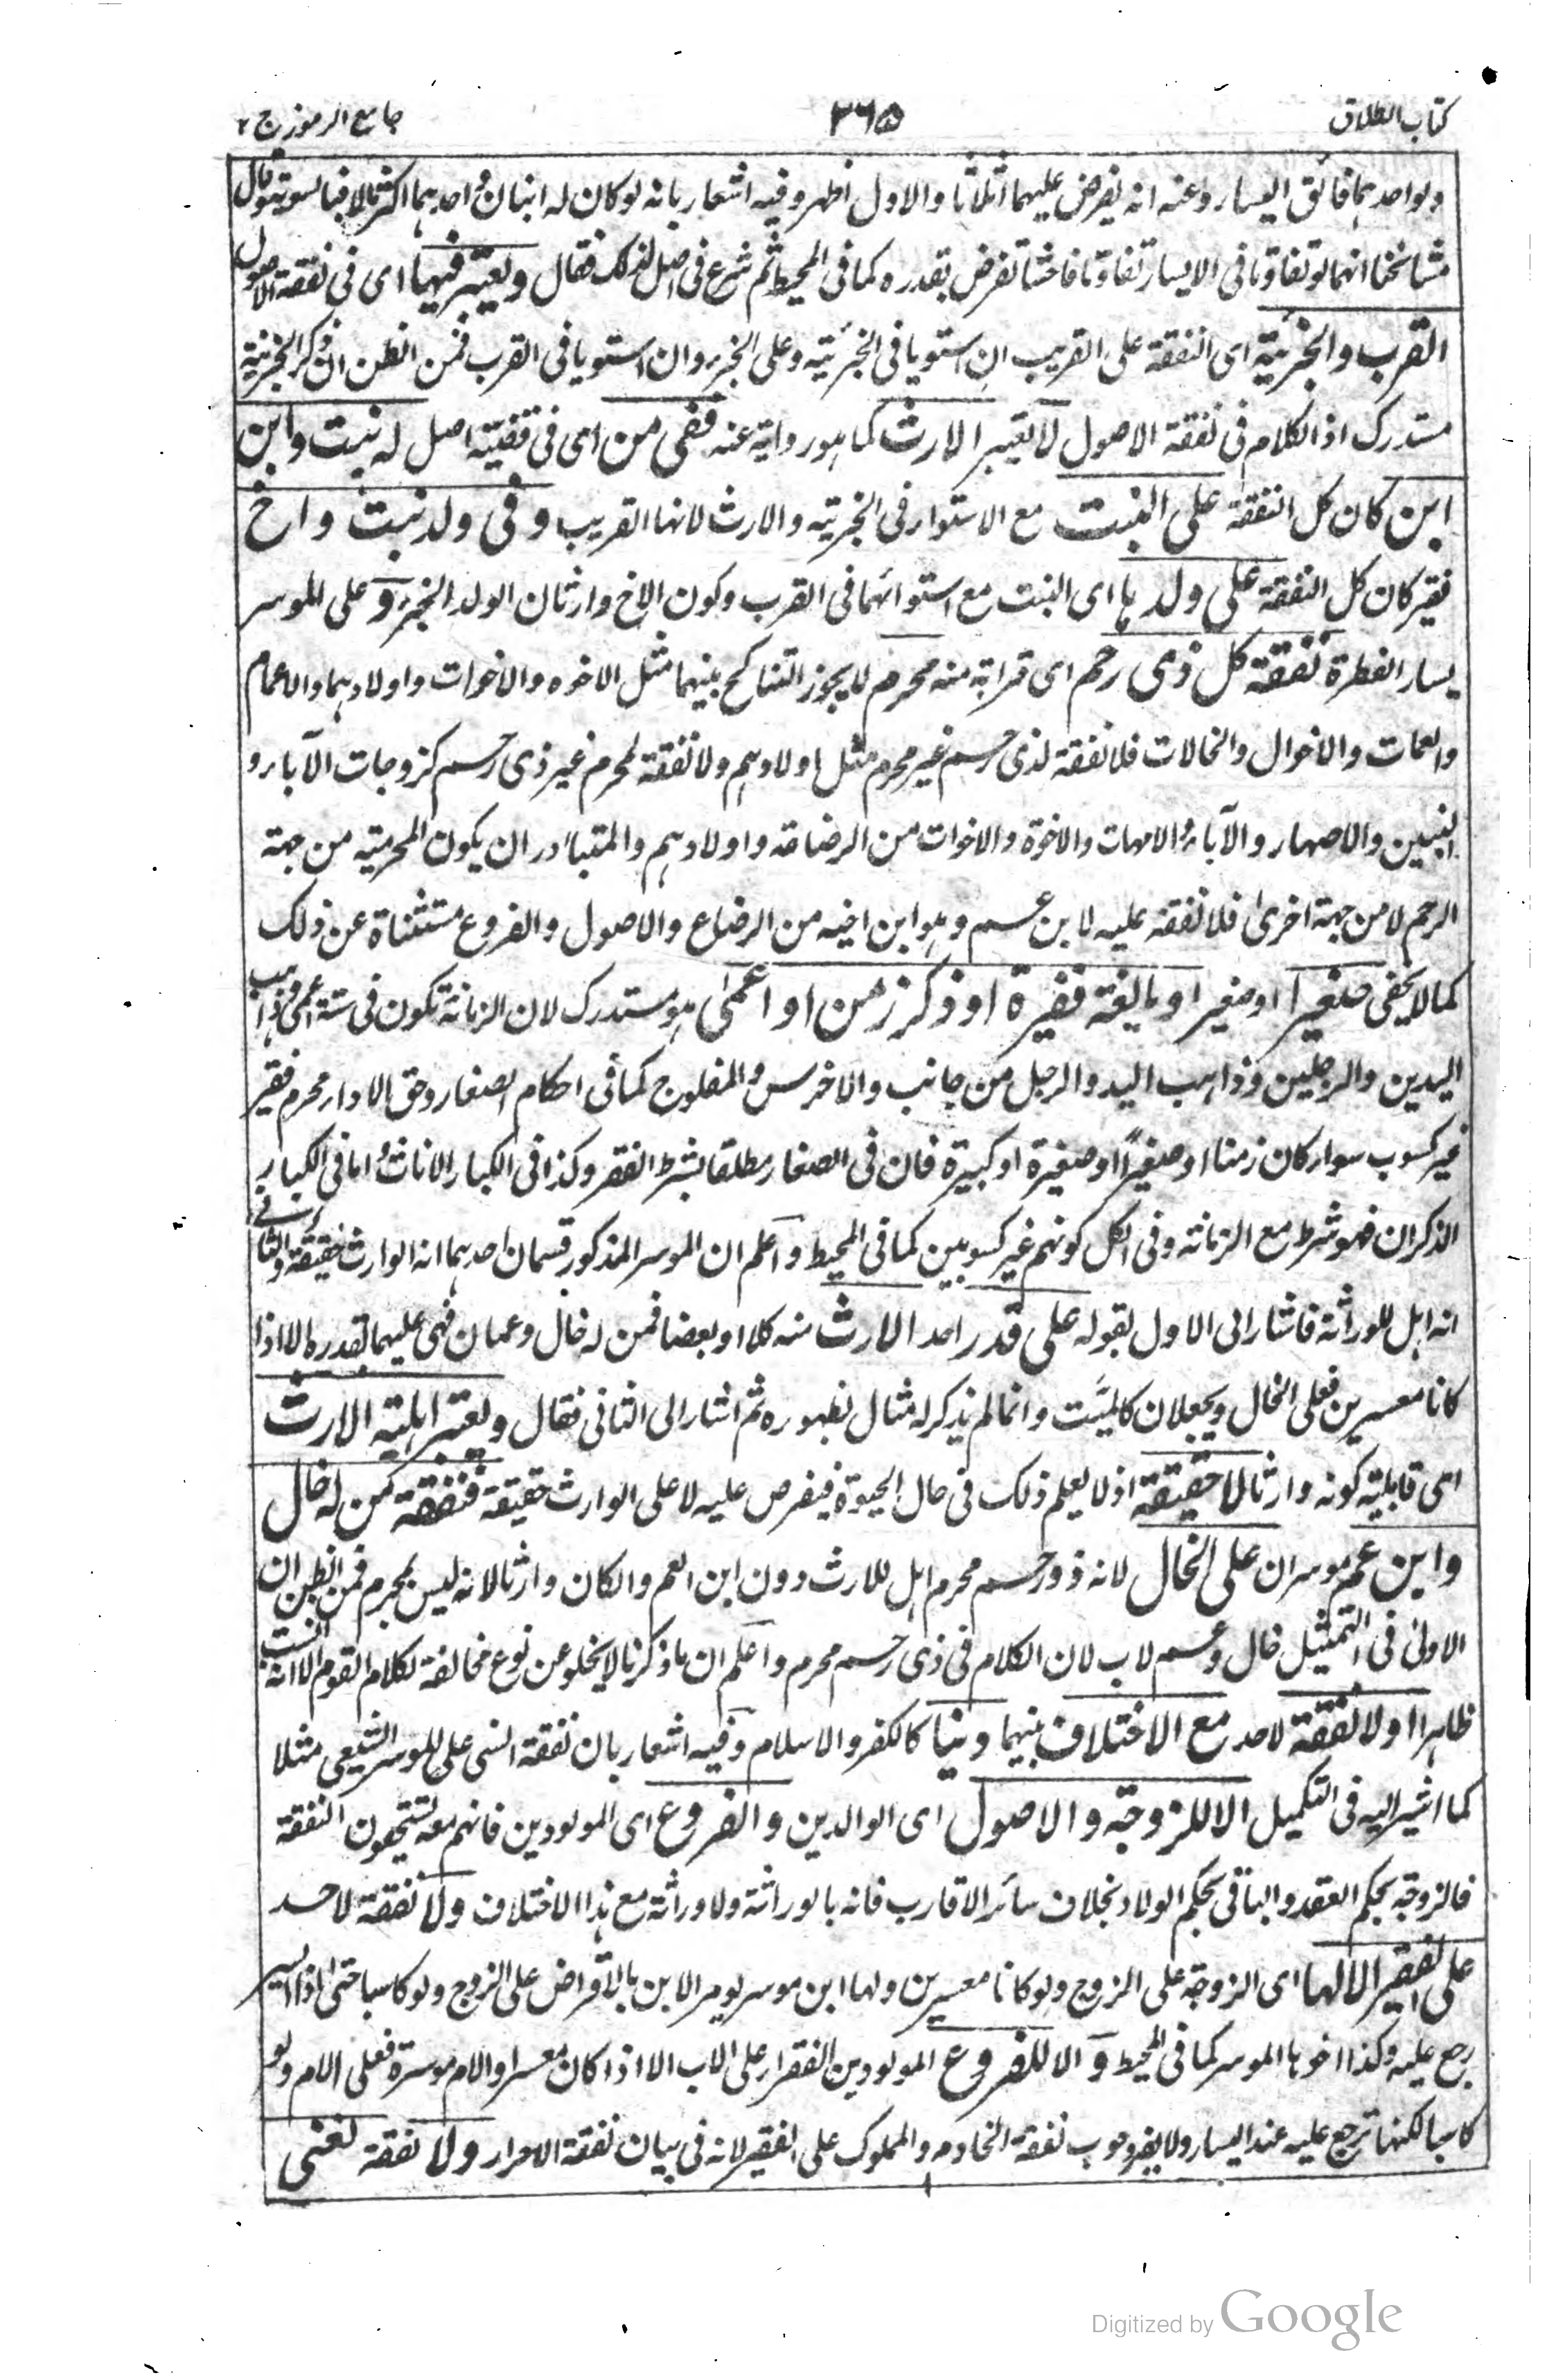 كتاب الطلاق
٣٦٥
جامع الرموز ج ٢
ولو احدهما فائق اليسار وعنه انه يفرض عليهما اثلاثا والاول اظهر وفيه اشعار بانه لو كان له ابنان احدهما اكثر مالا فبالسوية وقال
مشائخنا انهما لو تفاوتا فى الايسار تفاوتا فاحشا تفرض بقدره كما فى المحيط ثم شرع فى اصل لذلك فقال ويعتبر فيها اى فى نفقة الاصول
القرب والجزئية اى النفقة على القريب ان استويا فى الجزئية وعلى الجزء وان استويا فى القرب فمن الظن ان ذكر الجزئية
مستدرك اذ الكلام فى نفقة الاصول لا يعتبر الارث كما هو رواية عنه ففى من اى فى قضية اصل له بنت وابن
ابن كان كل النفقة على البنت مع الاستواء فى الجزئية والارث لانها القريب وفى ولد بنت واخ
فقير كان كل النفقة على ولدها اى البنت مع استوائهما فى القرب وكون الاخ وارثا لان الولد الجزء وعلى الموسر
يسار الفطرة نفقة كل ذى رحم اى قرابة منه محرم لا يجوز التناكح بينهما مثل الاخوه والاخوات واولادهما والاعمام
والعمات والاخوال والخالات فلا نفقة لذى رحم غير محرم مثل اولادهم ولا نفقة لمحرم غير ذى رحم كزوجات الآباء و
البنين والاصهار والآباء والامهات والاخوة والاخوات من الرضاعة واولادهم والمتبادر ان يكون المحرمية من جهة
الرحم لا من جهة اخرى فلا نفقة عليه لابن عم وهو ابن اخيه من الرضاع والاصول والفروع مستثناة عن ذلك
كما لا يخفى صغيرا او صغير او بالغة فقيرة او ذكر زمن او اعمى هو مستدرك لان الزمانة تكون فى ستة اعمى وذاهب
اليدين والرجلين وذاهب اليد والرجل من جانب والاخرس والمفلوج كما فى احكام الصغار وحق الاداء محرم فقير
غير كسوب سواء كان زمنا او صغيرا او صغيرة او كبيرة فان فى الصغار مطلقا بشرط الفقر وكذا فى الكبار الاناث واما فى الكبار
الذكران فهو شرط مع الزمانة وفى الكل كونهم غير كسوبين كما فى المحيط واعلم ان الموسر المذكور قسمان احدهما انه الوارث حقيقة والثانى
انه اهل للوراثة فاشار الى الاول بقوله على قدر احد الارث منه كلا او بعضا فمن له خال وعمان فهى عليهما بقدره الا اذا
كانا معسرين فعلى الخال ويجعلان كالميت وانما لم يذكر له مثال لظهوره ثم اشار الى الثانى فقال ويعتبر اهلية الارث
اى قابلية كونه وارثا لا حقيقة اذ لا يعلم ذلك فى حال الحيوة فيفرض عليه لا على الوارث حقيقة فنفقة من له خال
وابن عم موسران على الخال لانه ذو رحم محرم اهل للارث دون ابن العم والكان وارثا لانه ليس بمحرم فمن الظن ان
الاولى فى التمثيل خال وعم لاب لان الكلام فى ذى رحم محرم واعلم ان ما ذكرنا لا يخلو عن نوع مخالفة لكلام القوم الا انه انسب
ظاهرا ولا نفقة لاحد مع الاختلاف بينهما دينا كالكفر والاسلام وفيه اشعار بان نفقة السنى على الموسر الشيعى مثلا
كما اشير اليه فى التكميل الا للزوجة والاصول اى الوالدين والفروع اى المولودين فانهم معه يستحقون النفقة
فالزوجة بحكم العقد والباقى بحكم الولاد بخلاف سائر الاقارب فانه بالوراثة ولا وراثة مع هذا الاختلاف ولا نفقة لاحد
على الفقير الا لها اى الزوجة على الزوج ولو كانا معسرين ولها ابن موسر يومر الابن بالاقراض على الزوج ولو كاسبا حتى اذا ايسر
رجع عليه وكذا اخوها الموسر كما فى المحيط والا للفروع المولودين الفقراء على الاب الا اذا كان معسرا والام موسرة فعلى الام ولو
كاسبا لكنها ترجع عليه عند اليسار ولا يفرد وجوب نفقة الخادم والمملوك على الفقير لانه فى بيان نفقة الاحرار ولا نفقة لغنى
Digitized by Google